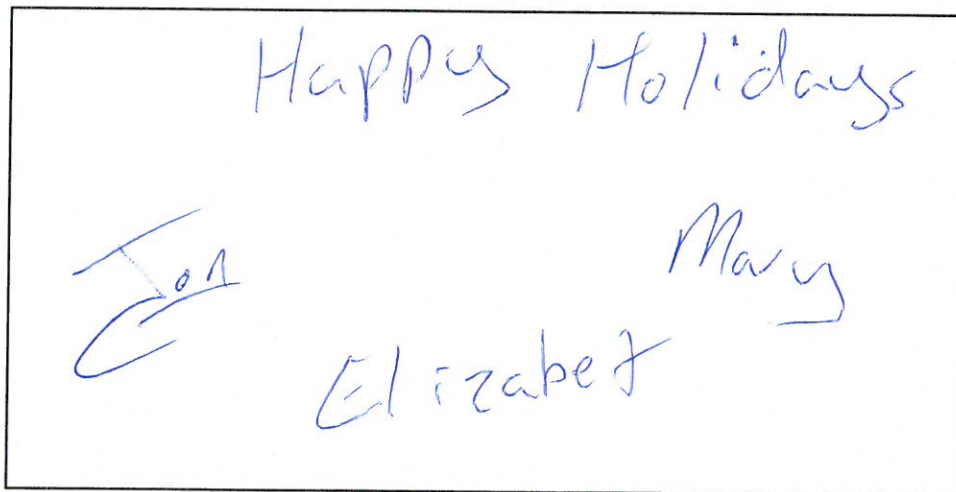 Happy Holidays
Jon
Mary
Elizabet